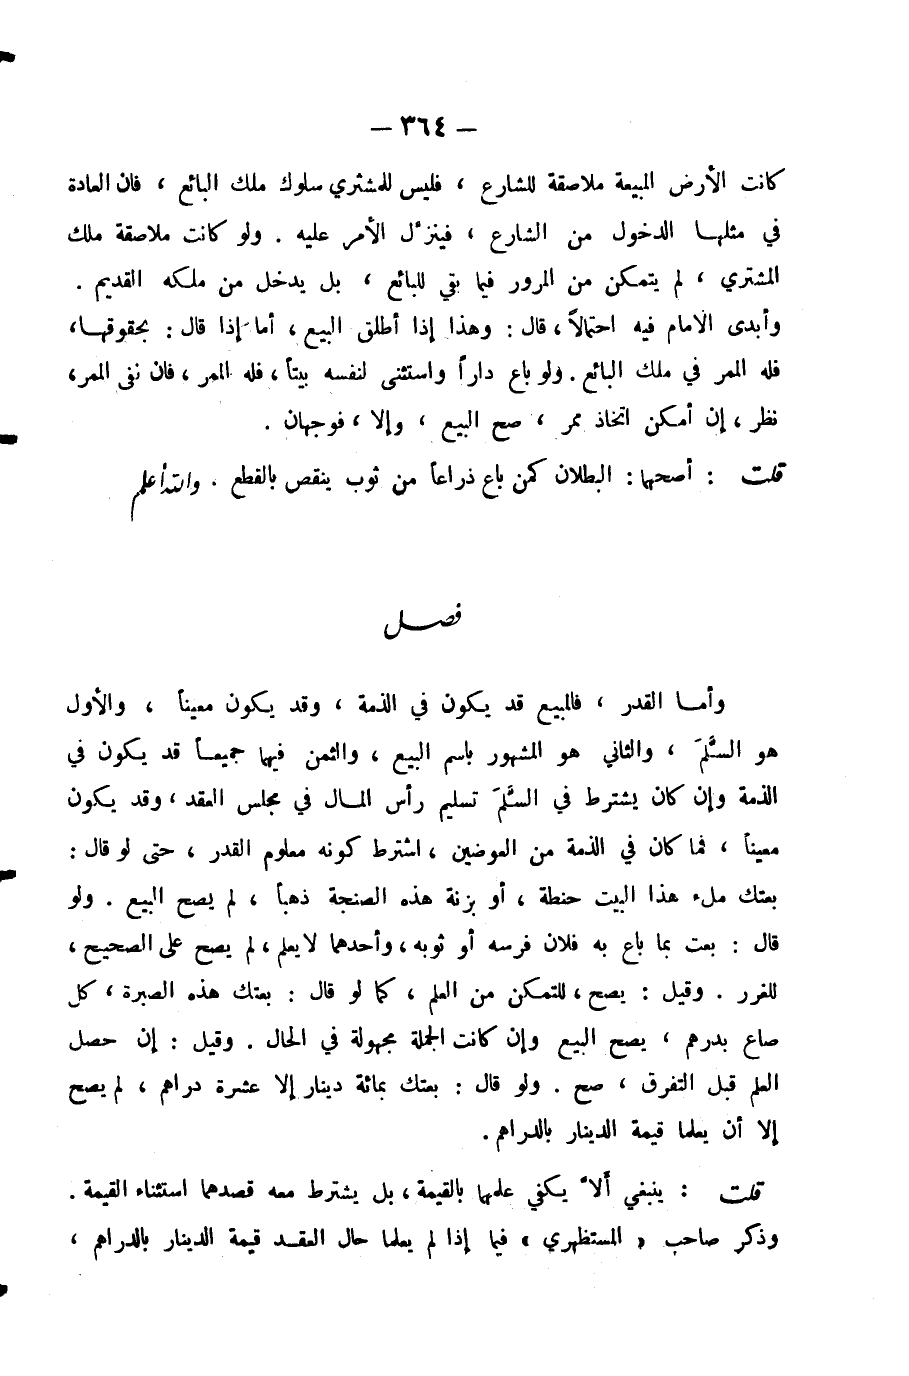 — ٣٦٤ —
كانت الأرض المبيعة ملاصقة للشارع ، فليس للمشتري سلوك ملك البائع ، فان العادة
في مثلها الدخول من الشارع ، فينزّل الأمر عليه . ولو كانت ملاصقة ملك
المشتري ، لم يتمكن من المرور فيما بقي للبائع ، بل يدخل من ملكه القديم .
وأبدى الامام فيه احتمالاً ، قال : وهذا إذا أطلق البيع ، أما إذا قال : بحقوقها ،
فله الممر في ملك البائع . ولو باع داراً واستثنى لنفسه بيتاً ، فله الممر ، فان نفى الممر ،
نظر ، إن أمكن اتخاذ ممر ، صح البيع ، وإلا ، فوجهان .
قلت : أصحها : البطلان كمن باع ذراعاً من ثوب ينقص بالقطع . والله أعلم
فصل
وأما القدر ، فالمبيع قد يكون في الذمة ، وقد يكون معيناً ، والأول
هو السَّلَم ، والثاني هو المشهور باسم البيع ، والثمن فيها جميعاً قد يكون في
الذمة وإن كان يشترط في السَّلَم تسليم رأس المال في مجلس العقد ، وقد يكون
معيناً ، فما كان في الذمة من العوضين ، اشترط كونه معلوم القدر ، حتى لو قال :
بعتك ملء هذا البيت حنطة ، أو بزنة هذه الصنجة ذهباً ، لم يصح البيع . ولو
قال : بعت بما باع به فلان فرسه أو ثوبه ، وأحدهما لا يعلم ، لم يصح على الصحيح ،
للغرر . وقيل : يصح ، للتمكن من العلم ، كما لو قال : بعتك هذه الصبرة ، كل
صاع بدرهم ، يصح البيع وإن كانت الجملة مجهولة في الحال . وقيل : إن حصل
العلم قبل التفرق ، صح . ولو قال : بعتك بمائة دينار إلا عشرة دراهم ، لم يصح
إلا أن يعلما قيمة الدينار بالدراهم .
قلت : ينبغي ألاّ يكفي علمها بالقيمة ، بل يشترط معه قصدهما استثناء القيمة .
وذكر صاحب « المستظهري » فيما إذا لم يعلما حال العقد قيمة الدينار بالدراهم ،